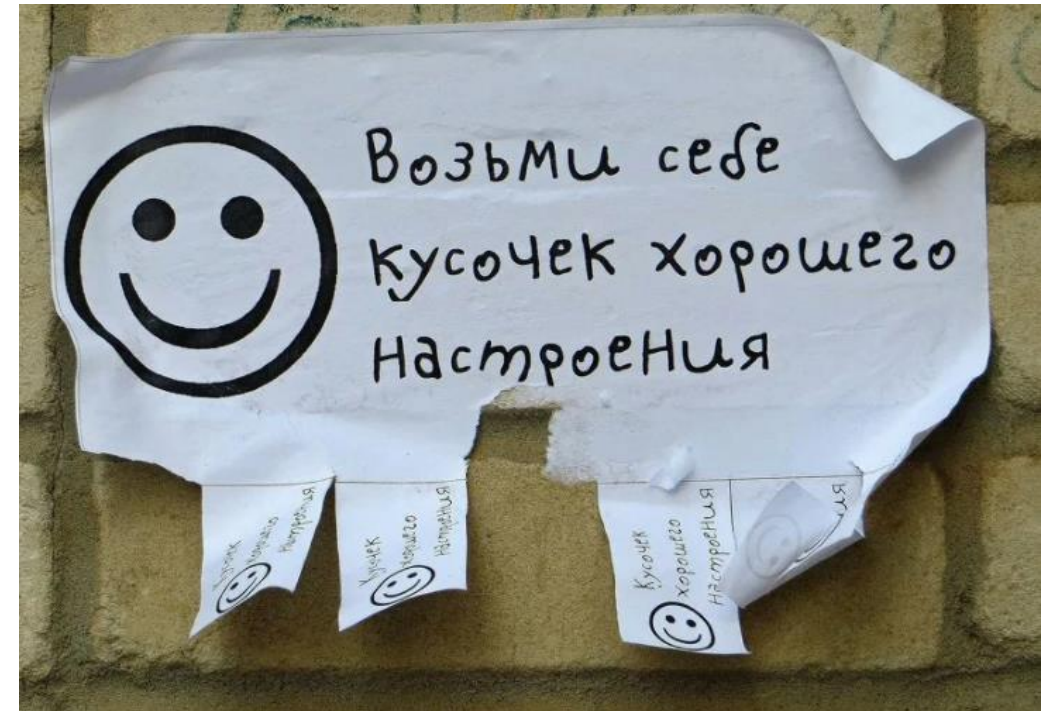 Возьми себе
кусочек хорошего
настроения
Кусочек
хорошего
настроения
Кусочек
хорошего
настроения
Кусочек
хорошего
настроения